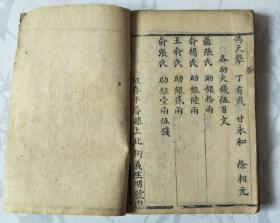 馮天擧 丁有成 甘永和 徐相元
各助大錢伍百文
蘇張氏 助銀拾兩
俞楊氏 助銀陸兩
王俞氏 助銀貳兩
俞張氏 助銀壹兩伍錢